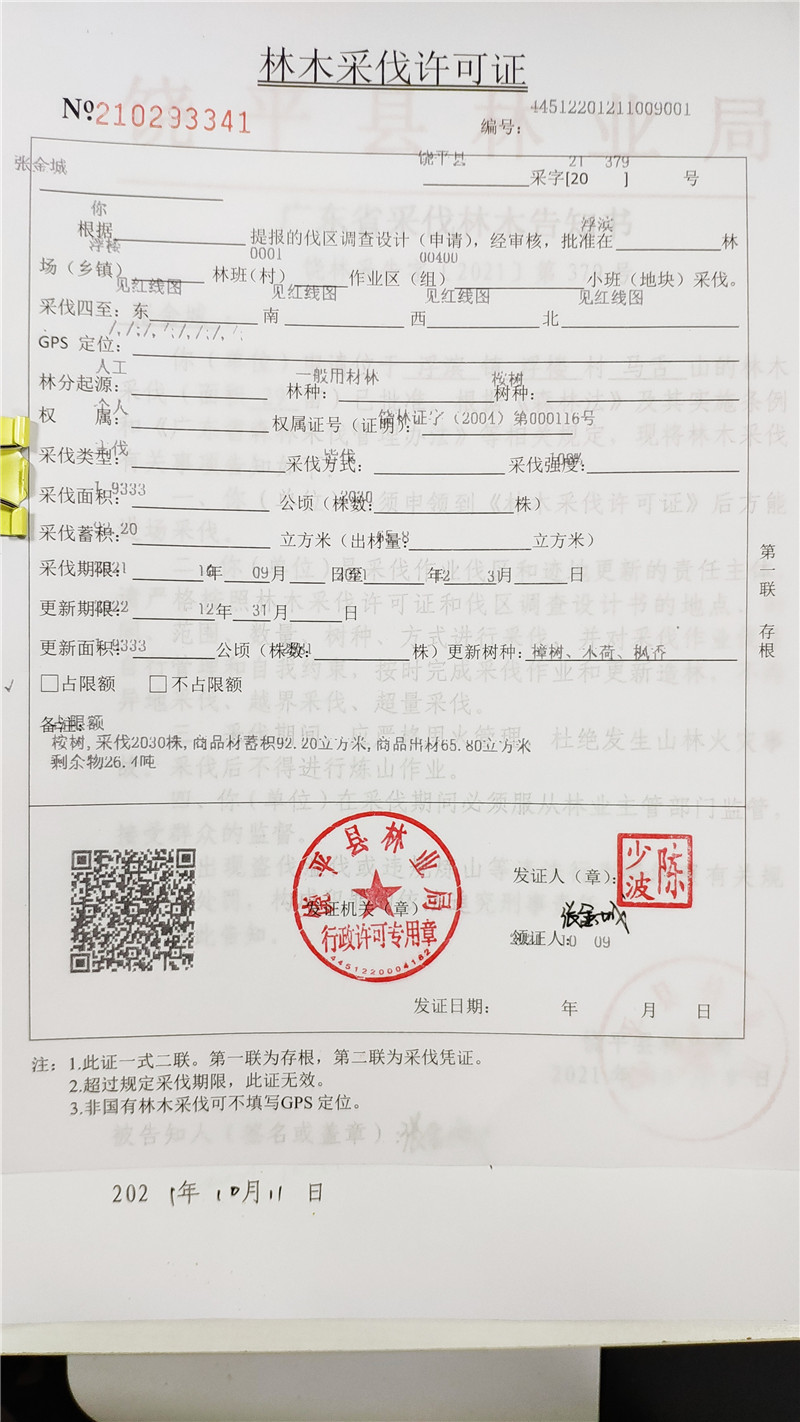 林木采伐许可证
№210293341
编号：44512201211009001
张金城
饶平县 采字[20 21 ] 379 号
根据 你 提报的伐区调查设计（申请），经审核，批准在 浮滨 林
场（乡镇） 林班（村） 0001 作业区（组） 00400 小班（地块）采伐。
采伐四至：东 见红线图 南 见红线图 西 见红线图 北 见红线图
GPS 定位： /,/;/,/;/,/;/,/;
林分起源： 人工 林种： 一般用材林 树种： 桉树
权 属： 个人 权属证号（证明）： 饶林证字（2004）第000116号
采伐类型： 主伐 采伐方式： 皆伐 采伐强度： 100%
采伐面积： 1.9333 公顷（株数： 2030 株）
采伐蓄积： 92.20 立方米（出材量： 65.8 立方米）
采伐期限： 2021 年 10 月 09 日至 2021 年 12 月 31 日
更新期限： 2022 年 12 月 31 日
更新面积： 1.9333 公顷（株数： 株）更新树种： 樟树、木荷、枫香
√ □占限额 □不占限额
备注： 占限额
桉树,采伐2030株,商品材蓄积92.20立方米,商品出材65.80立方米
剩余物26.4吨
第一联 存根
饶平县林业局
行政许可专用章
4451220004182
发证机关（章）
发证人（章）：
陈少波
领证人： 张金城
10 09
发证日期： 年 月 日
注：1.此证一式二联。第一联为存根，第二联为采伐凭证。
2.超过规定采伐期限，此证无效。
3.非国有林木采伐可不填写GPS 定位。
2021年10月11日